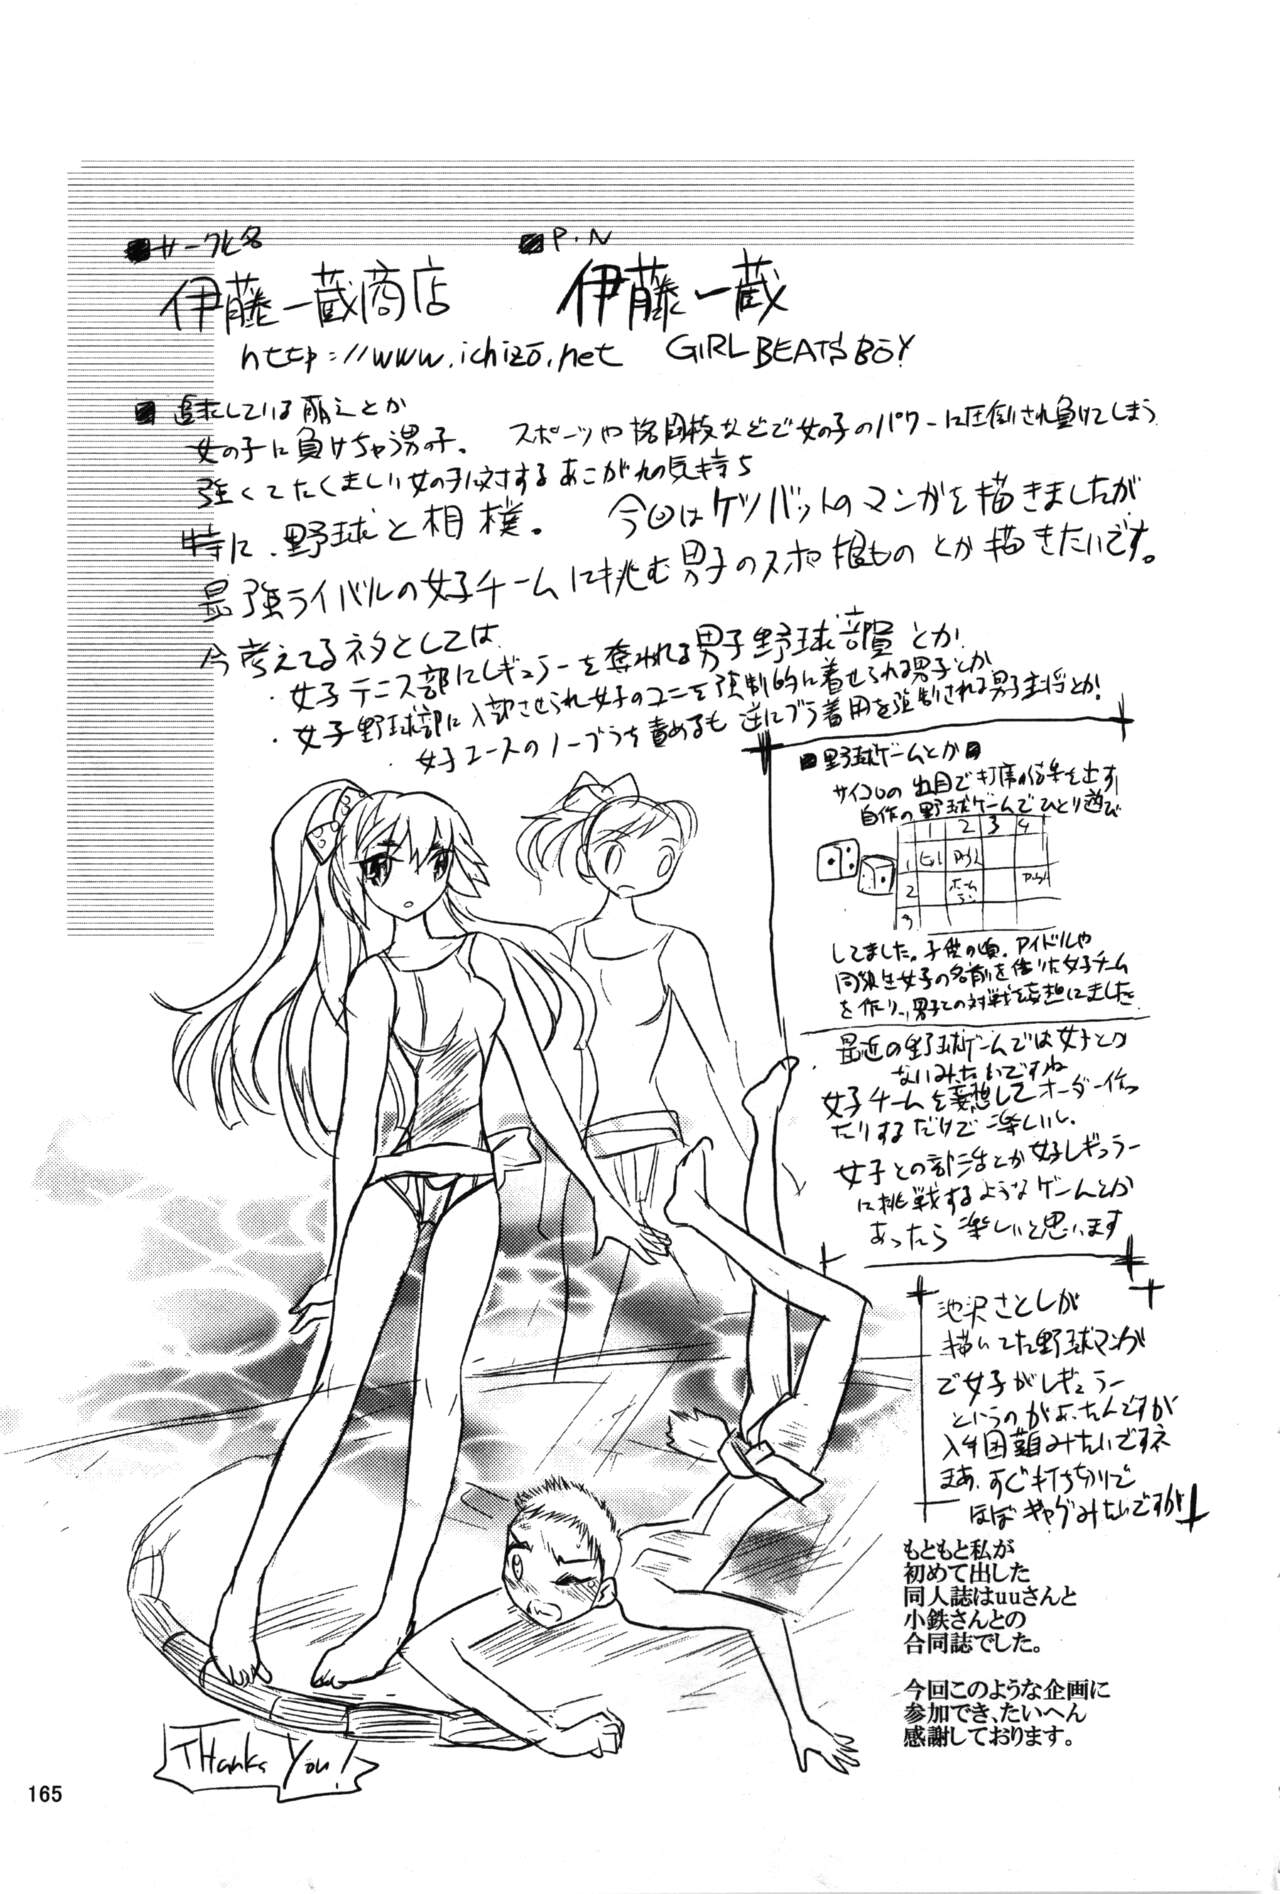 ■サークル名
伊藤一蔵商店
■P.N
伊藤一蔵
http://www.ichizo.net GIRL BEATS BOY
■追求している萌えとか
女の子に負けちゃう男の子。 スポーツや格闘技などで女の子のパワーに圧倒され負けてしまう
強くてたくましい女の子に対するあこがれの気持ち
特に、野球と相撲。 今回はケツバットのマンガを描きましたが、
最強ライバルの女子チームに挑む男子のスポ根ものとか描きたいです。
今考えてるネタとしては
・女子テニス部にレギュラーを奪われる男子野球部員とか
・女子野球部に入部させられ女子のユニを強制的に着せられる男子とか
女子エースのノーブラを責めるも逆にブラ着用を強制される男子主将とか!
■野球ゲームとか■
サイコロの出目で打席の結果を出す
自作の野球ゲームでひとり遊び
1 2 3 4
1
2 ホームラン
3
してました。子供の頃、アイドルや
同級生女子の名前を借りた女子チーム
を作り、男子との対戦を妄想してました
最近の野球ゲームでは女子とか
ないみたいですね
女子チームを妄想してオーダー作っ
たりするだけで楽しいし、
女子との部活とか女子レギュラー
に挑戦するようなゲームとか
あったら楽しいと思います
池沢さとしが
描いてた野球マンガ
で女子がレギュラー
というのがあったんですが
入手困難みたいですネ
まあ、すぐ打ちきりで
ほぼギャグみたいですが
もともと私が
初めて出した
同人誌はuuさんと
小鉄さんとの
合同誌でした。
今回このような企画に
参加でき、たいへん
感謝しております。
THanks You!
165